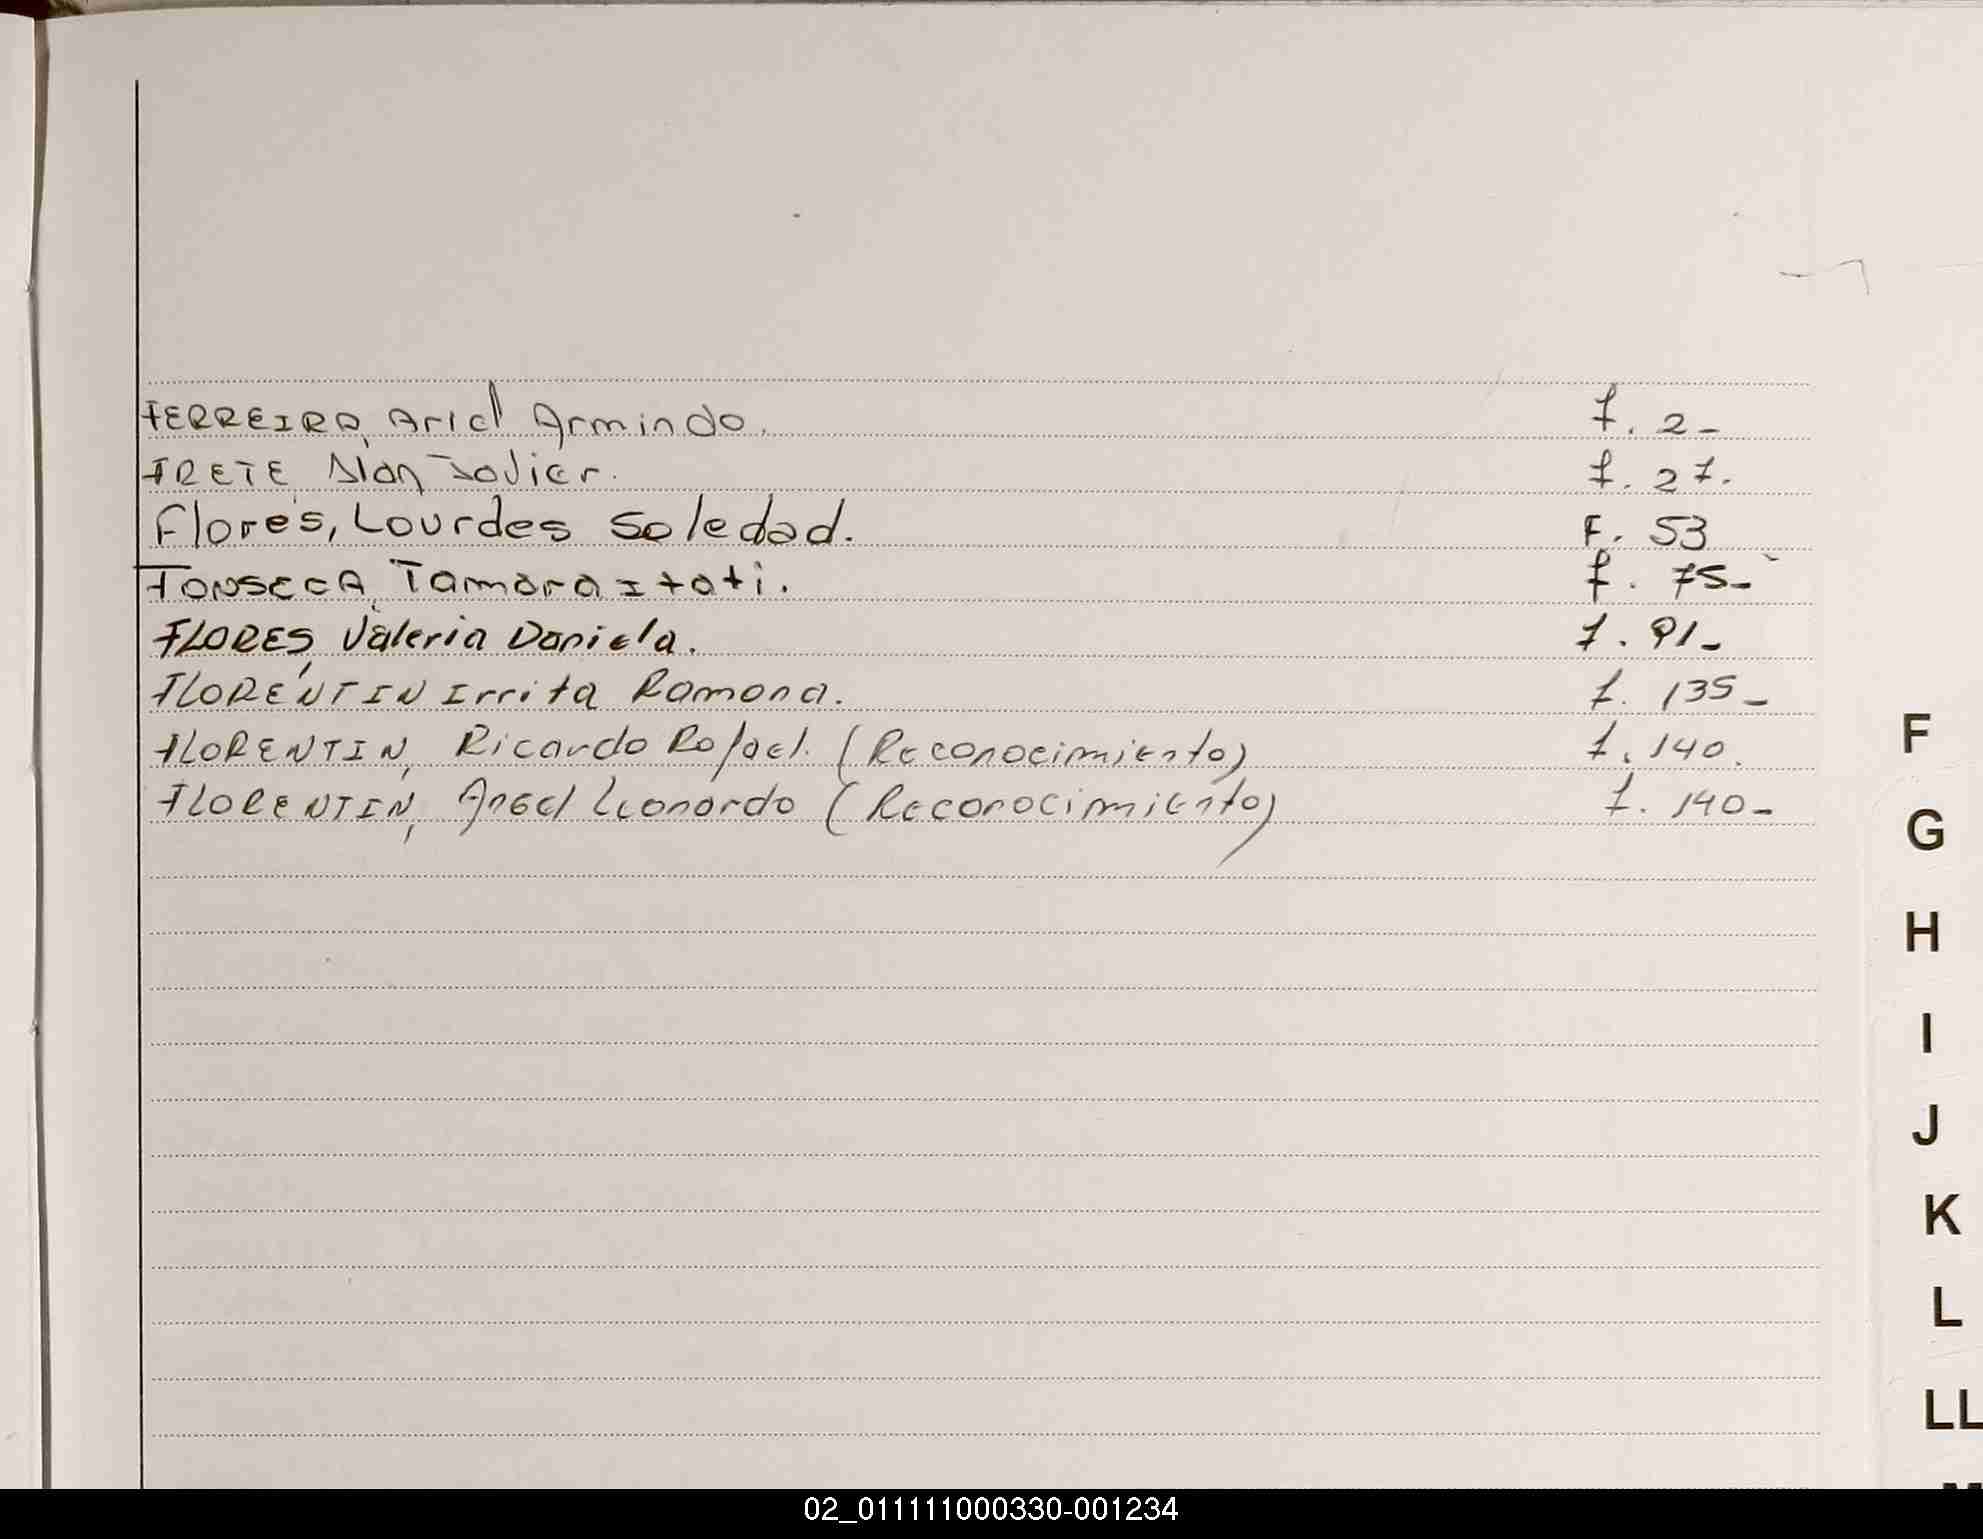 FERREIRO, Ariel Armindo. f. 2-
FRETE Alan Javier. f. 27.
Flores, Lourdes Soledad. F. 53
FONSECA, Tamara Itati. f. 75-
FLORES, Valeria Daniela. f. 91-
FLORENTIN Irrita Ramona. f. 135-
FLORENTIN, Ricardo Rafael. (Reconocimiento) f. 140.
FLORENTIN, Angel Leonardo (Reconocimiento) f. 140-
F
G
H
I
J
K
L
LL
02_011111000330-001234